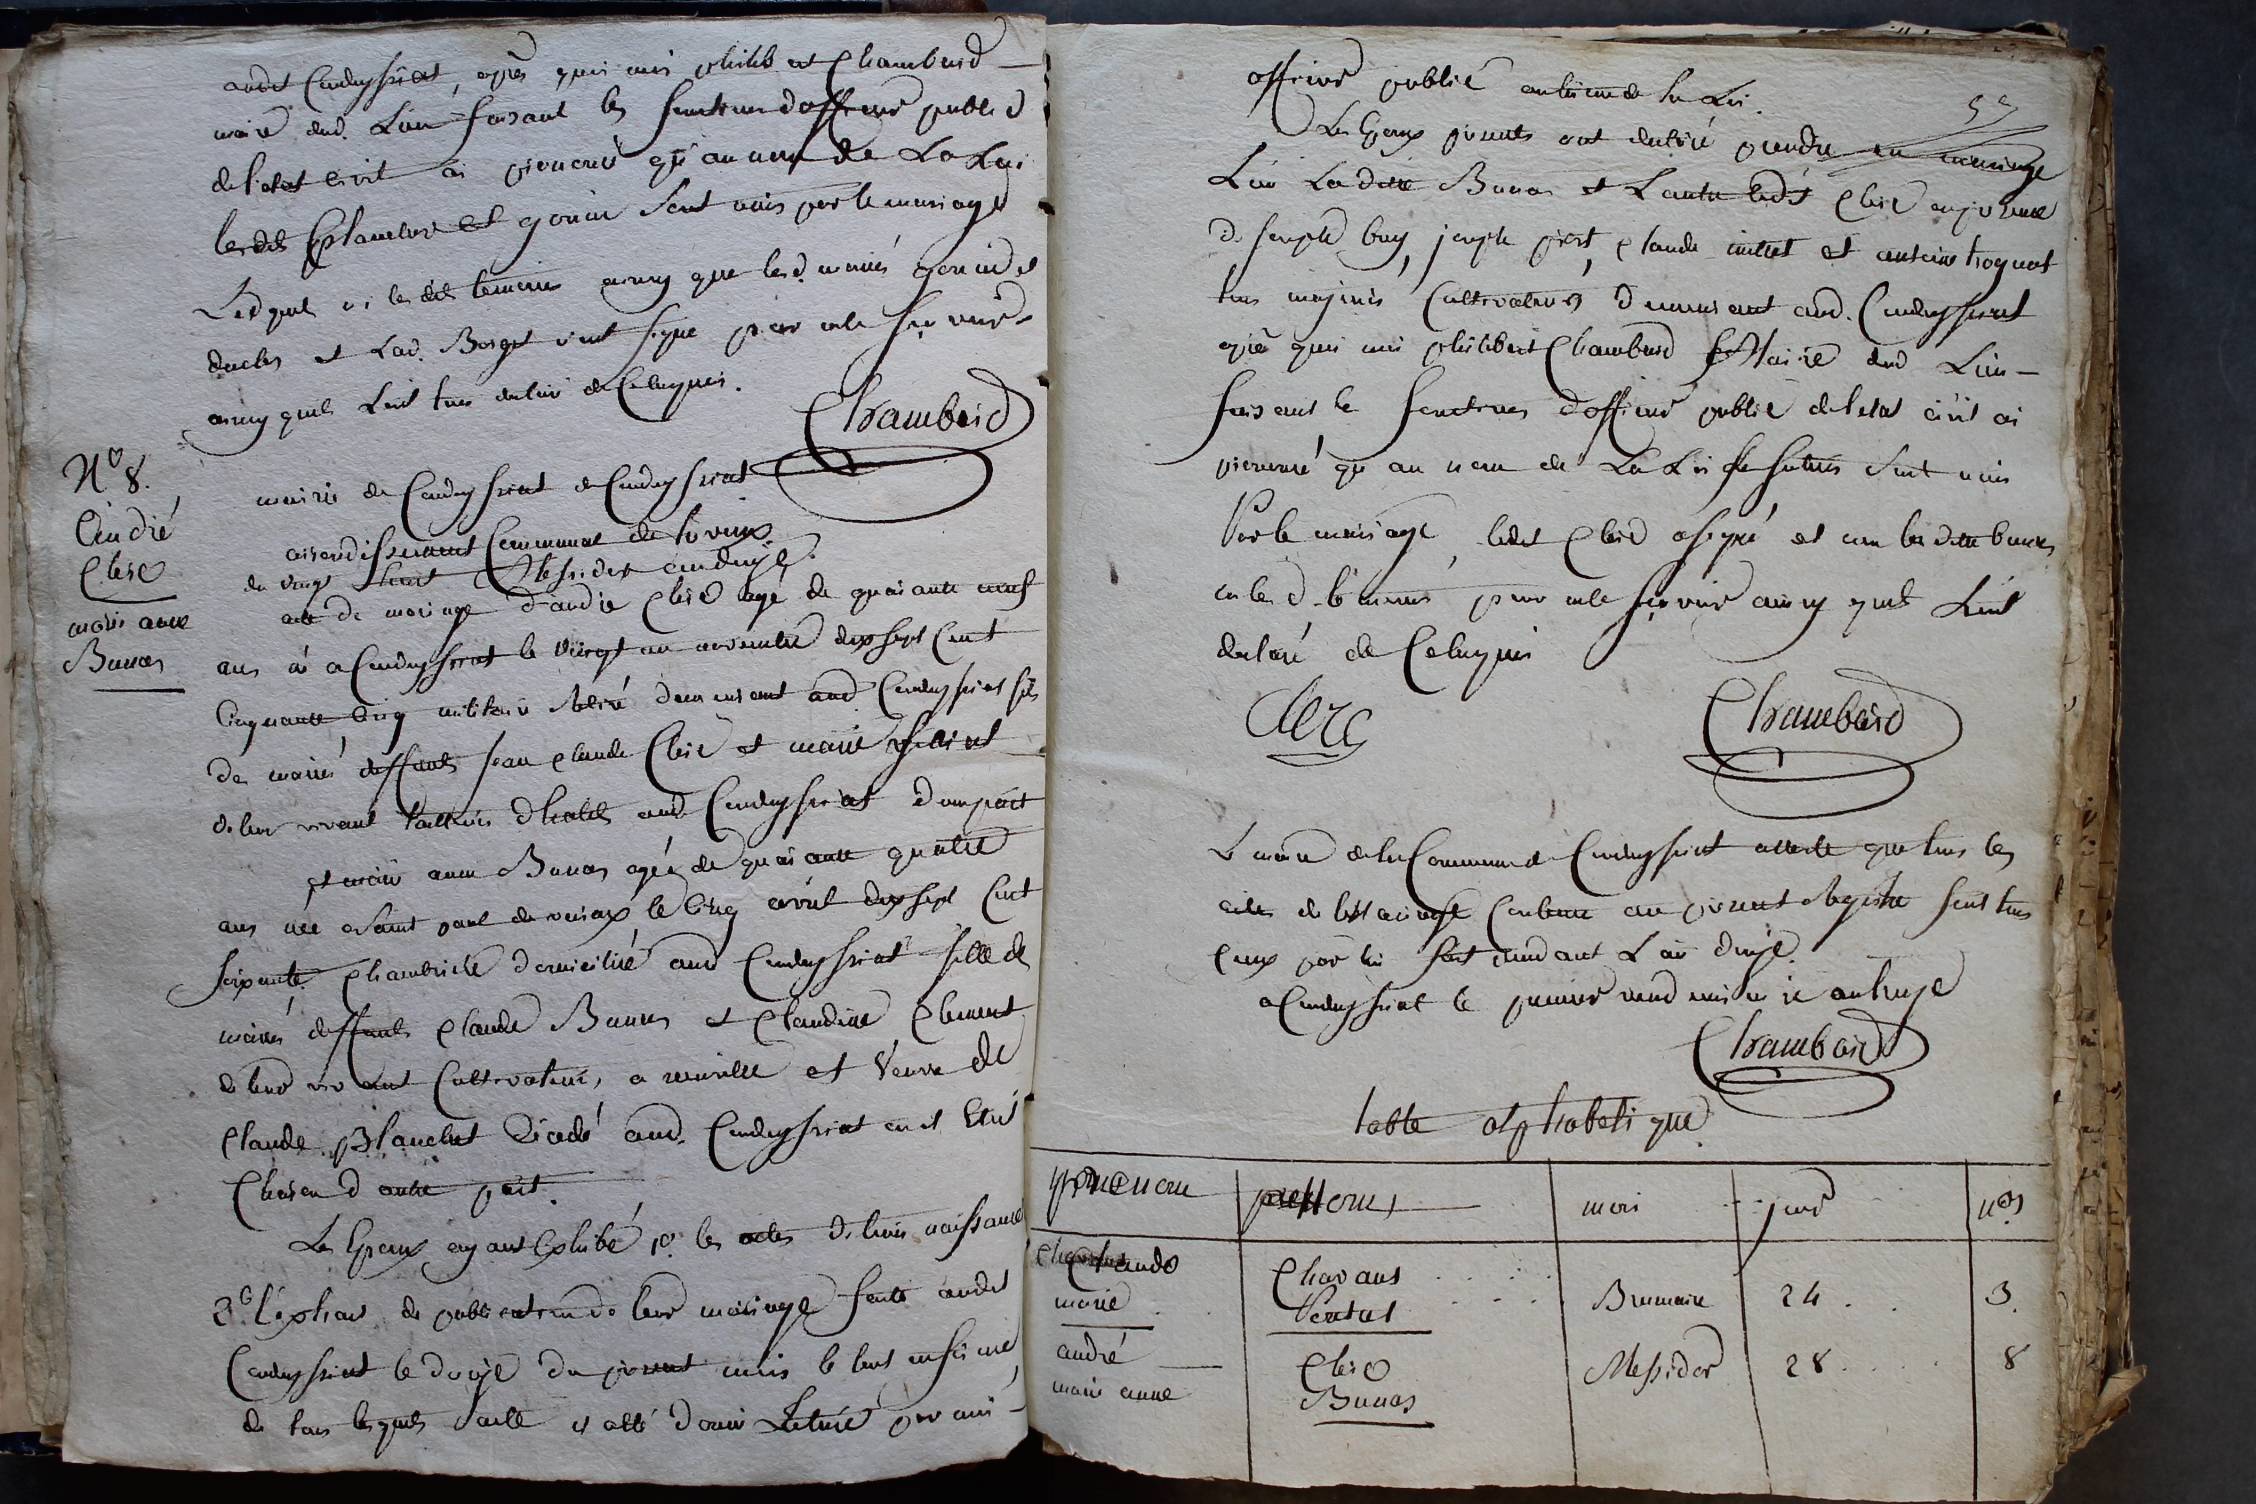 audt Condeyssiat, après quoi moi philibert Chambard
maire dud. Lieu faisant les fonctions d'officier public
de l'etat civil ai prononcé qu'au nom de La Loi
lesdits et gonin sont unis par le mariage
ainsy que les d. mariés gonin et
et Lad. Borget n'ont signé pour ne le sçavoir
ainsy quils L'ont tous declaré de Ce Enquis.
Chambard
N° 8.
André
Clerc
marie anne
Bunas
mairie de Condeyssiat de Condeyssiat
arondissement Communal de trevoux
du vingt huit Messidor an douze.
acte de mariage d'andré Clerc agé de quarante neuf
ans né a Condeyssiat le vingt un novembre dix sept Cent
Cinquante Cinq militaire retiré demeurant aud. Condeyssiat fils
des mariés deffunts jean claude Clerc et marie
de leur vivant habts aud Condeyssiat d'une part
et marie anne Bunas agée de quarante quatre
ans née a Saint paul de varax le Cinq avril dix sept Cent
soixante. domiciliée aud Condeyssiat fille de
mariés deffunts Claude Bunas et Claudine Clement
de leur vivant Cultivateurs, a et Veuve de
Claude Planchet Décédé aud. Condeyssiat en
Chacun d'autre part.
Les Epoux ayant Exhibé 1° les actes de leurs naissances
2° l'extrait de publication de leur mariage faite audit
Condeyssiat le douze du present mois le tout en forme,
de tous lesquels acte il a été donné Lecture par moi
officier public au terme de la Loi.
Les Epoux presents ont declaré prendre en mariage
L'un Ladite Bunas et L'autre ledt Clerc en presence
de joseph buy, joseph piert, claude millet et antoine troquet
tous majeurs, Cultivateurs demeurant aud. Condeyssiat
après quoi moi philibert Chambard Maire dud Lieu
faisant les fonctions d'officier public de l'etat civil ai
prononcé qu'au nom de La Loi les futurs sont unis
Par le mariage, ledit Clerc a signé et non ladite bunas
ni les d. temoins pour ne le sçavoir ainsy quils L'ont
declaré de Ce Enquis
Clerc
Chambard
Le maire de la Commune de Condeyssiat atteste que tous les
actes de mariage Contenu au present Registre sont tous
Ceux par lui fait pendant L'an douze.
a Condeyssiat le premier vendemiaire an treize
Chambard
table alphabetique
prenom mois jour nos
Claude Charans
marie Brumaire 24 3.
andré Clerc Messidor 28 8
marie anne Bunas